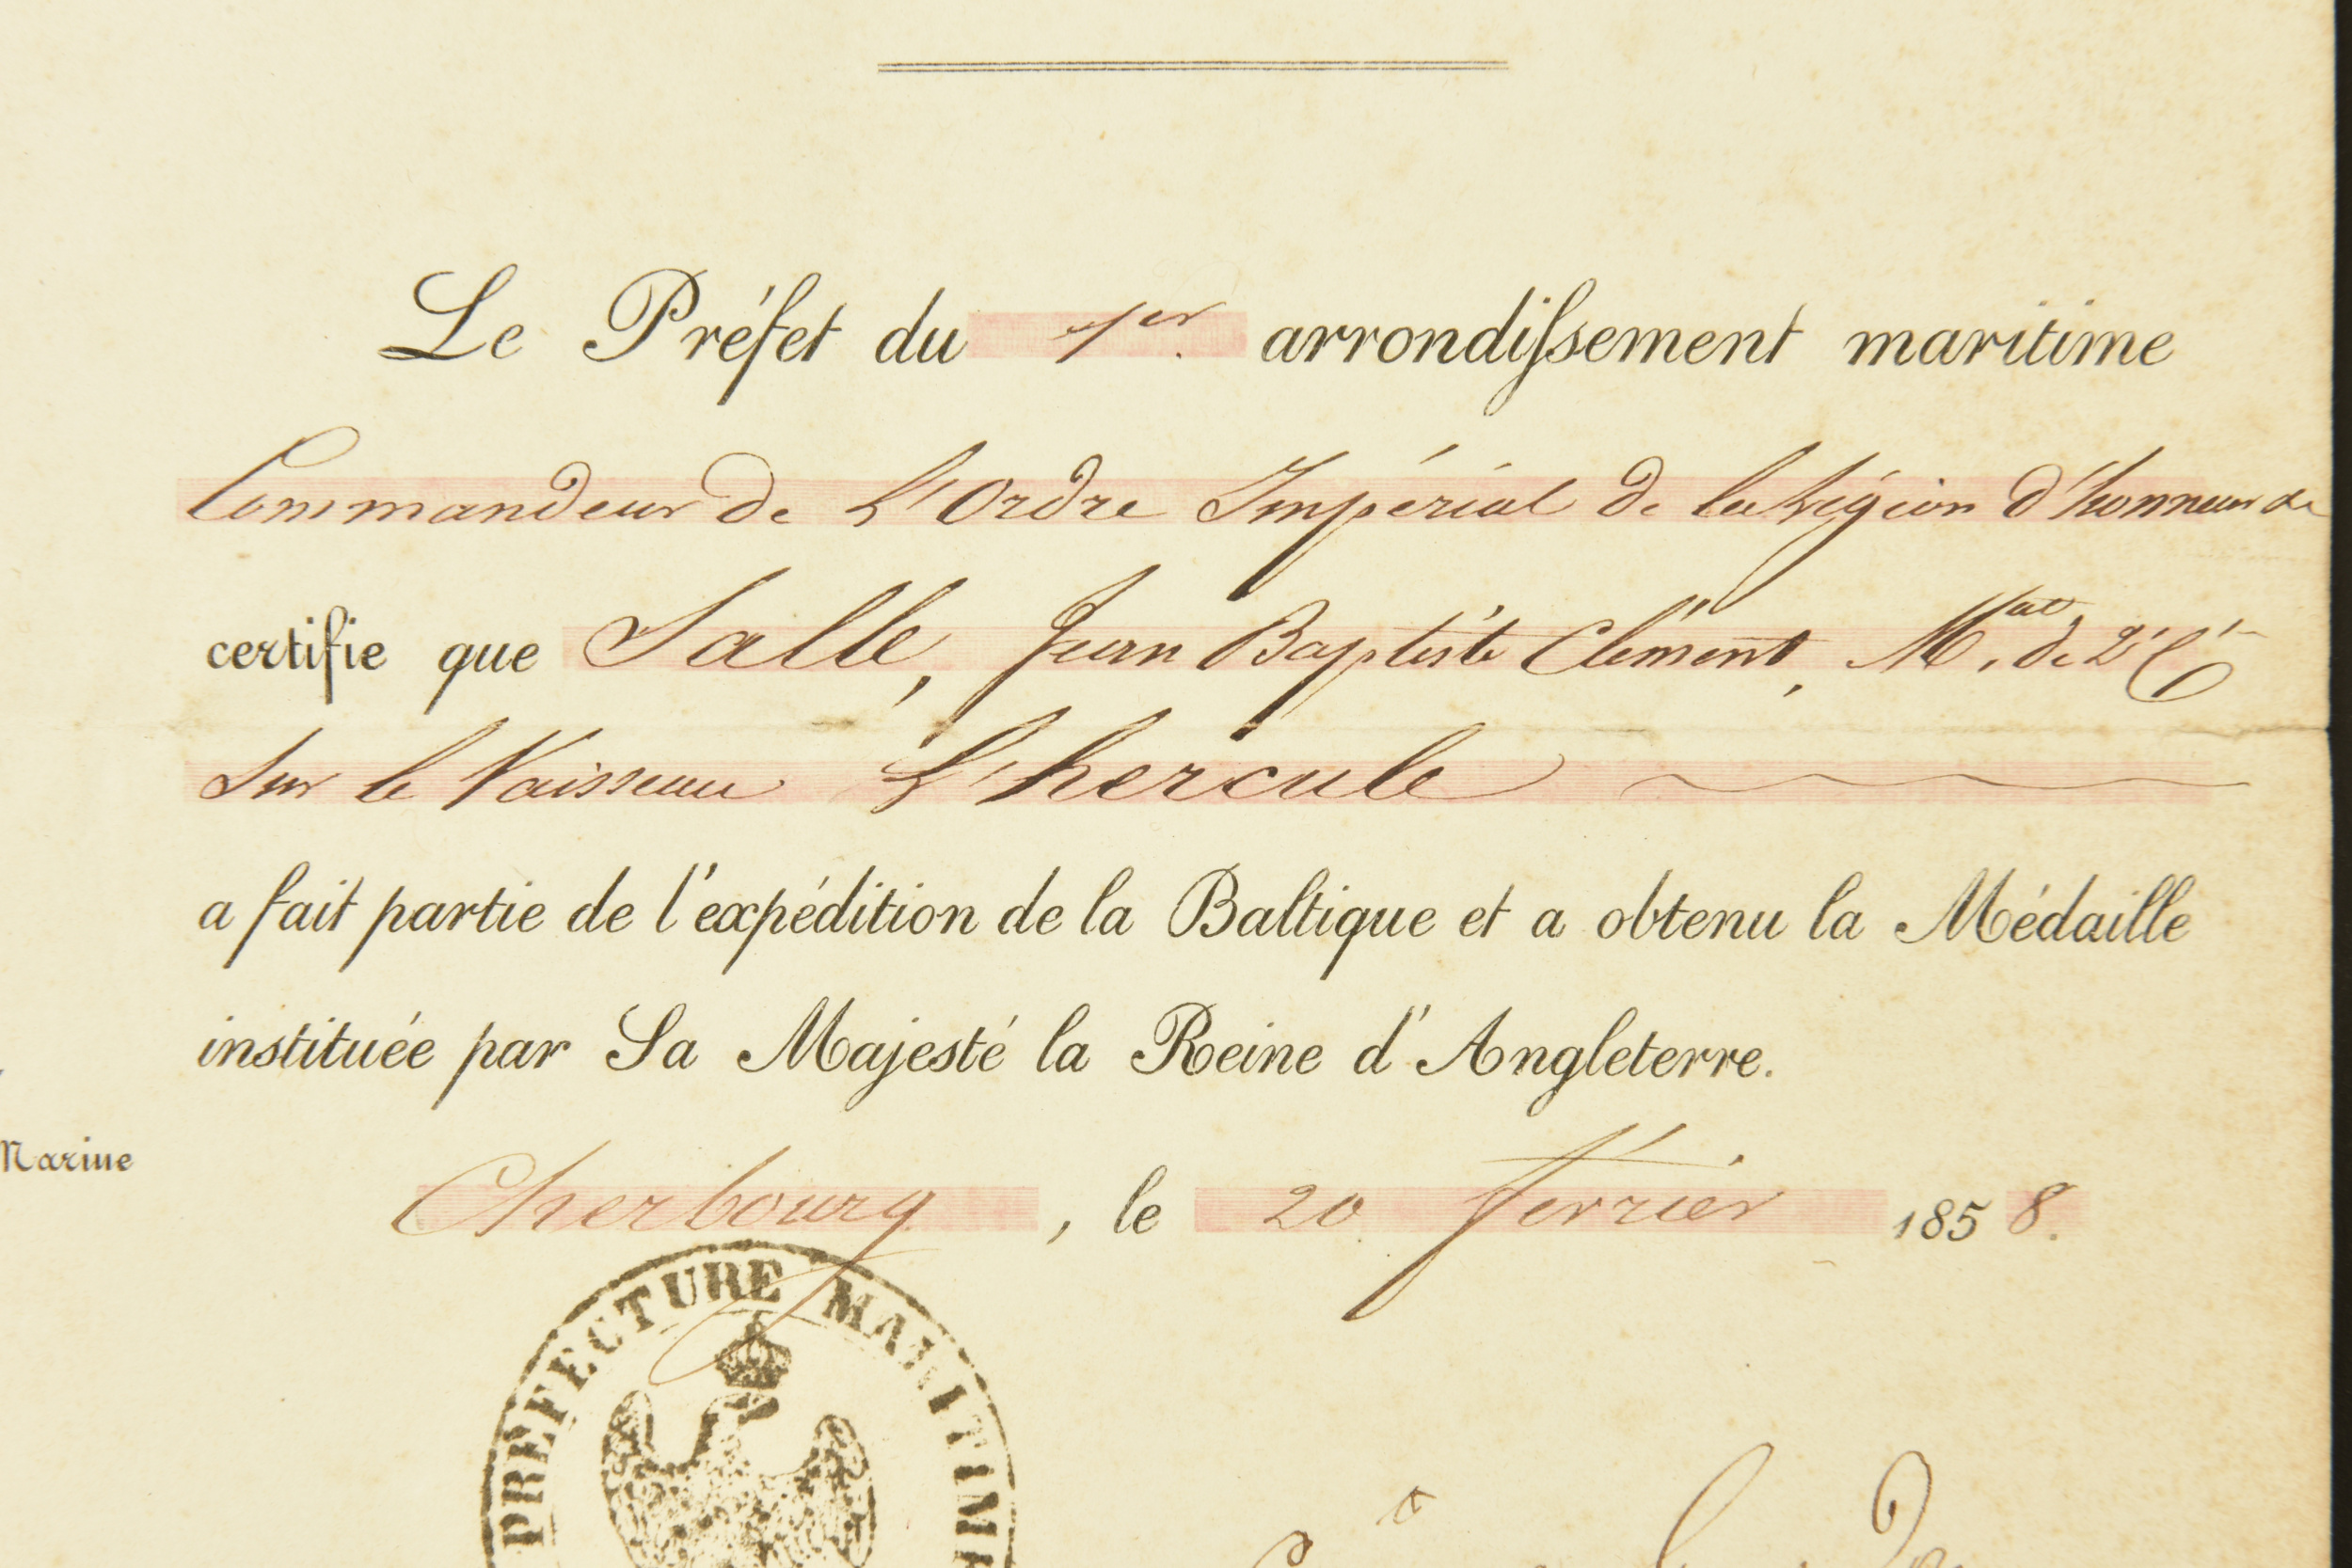 Le Préfet du 1er. arrondissement maritime
Commandeur de L'Ordre Impérial de la Légion d'honneur &c
certifie que Salle, Jean Baptiste Clément, Mat. de 2e Cl
Sur le Vaisseau L'hercule
a fait partie de l'expédition de la Baltique et a obtenu la Médaille
instituée par Sa Majesté la Reine d'Angleterre.
Marine
Cherbourg, le 20 février 1858.
PREFECTURE MARITIME